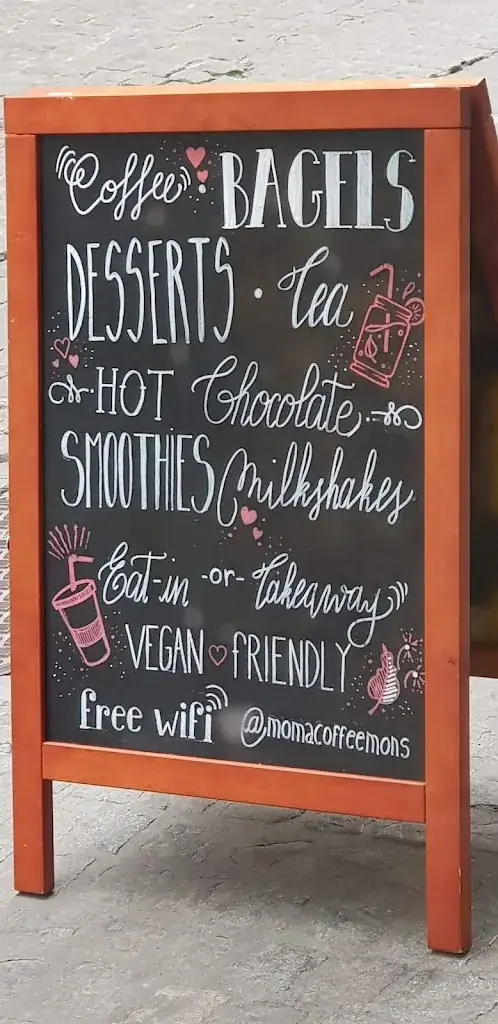 Coffee BAGELS
DESSERTS · Tea
HOT Chocolate
SMOOTHIES Milkshakes
Eat-in -or- Takeaway
VEGAN ♡ fRIENDLY
free wifi @momacoffeemons